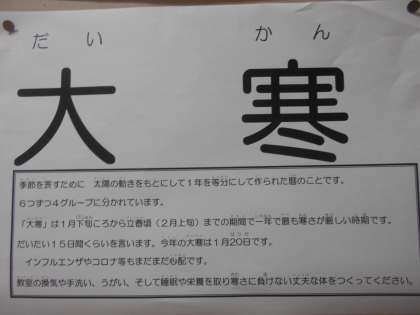 だい かん
大寒
季節を表すために 太陽の動きをもとにして1年を等分にして作られた暦のことです。
6つずつ4グループに分かれています。
「大寒」は1月下旬ころから立春頃（2月上旬）までの期間で一年で最も寒さが厳しい時期です。
だいたい15日間くらいを言います。今年の大寒は1月20日です。
インフルエンザやコロナ等もまだまだ心配です。
教室の換気や手洗い、うがい、そして睡眠や栄養を取り寒さに負けない丈夫な体をつくってください。